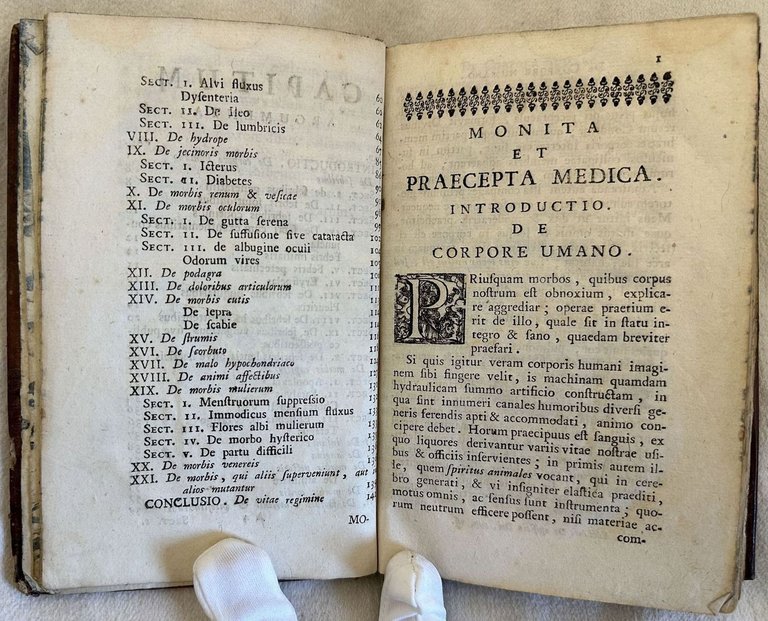 SECT. I. Alvi fluxus
Dysenteria
SECT. II. De Ileo
SECT. III. De lumbricis
VIII. De hydrope
IX. De jecinoris morbis
SECT. I. Icterus
SECT. II. Diabetes
X. De morbis renum & vesicae
XI. De morbis oculorum
SECT. I. De gutta serena
SECT. II. De suffusione sive cataracta
SECT. III. de albugine ocuii
Odorum vires
XII. De podagra
XIII. De doloribus articulorum
XIV. De morbis cutis
De lepra
De scabie
XV. De strumis
XVI. De scorbuto
XVII. De malo hypochondriaco
XVIII. De animi affectibus
XIX. De morbis mulierum
SECT. I. Menstruorum suppressio
SECT. II. Immodicus mensium fluxus
SECT. III. Flores albi mulierum
SECT. IV. De morbo hysterico
SECT. V. De partu difficili
XX. De morbis venereis
XXI. De morbis, qui aliis superveniunt, aut
alios mutantur
CONCLUSIO. De vitae regimine
MO-
1
MONITA
ET
PRAECEPTA MEDICA.
INTRODUCTIO.
DE
CORPORE UMANO.
PRiusquam morbos, quibus corpus
nostrum est obnoxium, explica-
re aggrediar; operae praetium e-
rit de illo, quale sit in statu in-
tegro & sano, quaedam breviter
praefari.
Si quis igitur veram corporis humani imagi-
nem sibi fingere velit, is machinam quamdam
hydraulicam summo artificio constructam, in
qua sint innumeri canales humoribus diversi ge-
neris ferendis apti & accommodati, animo con-
cipere debet. Horum praecipuus est sanguis, ex
quo liquores derivantur variis vitae nostrae usi-
bus & officiis inservientes; in primis autem il-
le, quem spiritus animales vocant, qui in cere-
bro generati, & vi insigniter elastica praediti,
motus omnis, ac sensus sunt instrumenta; quo-
rum neutrum efficere possent, nisi materiae ac-
com-